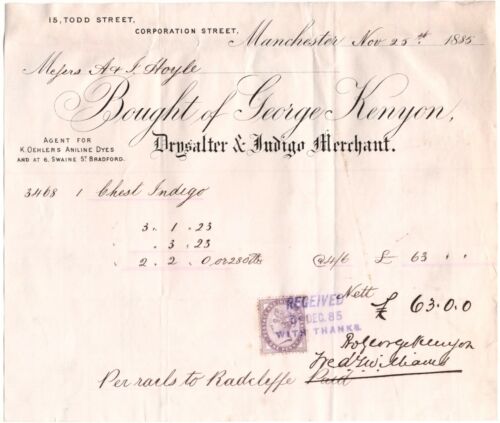 15, TODD STREET,
CORPORATION STREET,
Manchester Nov 25th 1885
Messrs A & J. Hoyle
Bought of George Kenyon,
AGENT FOR
K. OEHLERS ANILINE DYES
AND AT 6. SWAINE ST BRADFORD.
Drysalter & Indigo Merchant.
3468 1 Chest Indigo
3 . 1 . 23
. 3 . 23
2 . 2 . 0 or 280 lbs @ 4/6 £ 63 " "
Nett £ 63.0.0
RECEIVED
DEC. 85
WITH THANKS.
Pro George Kenyon
Fred Williams
Per rails to Radcliffe Paid